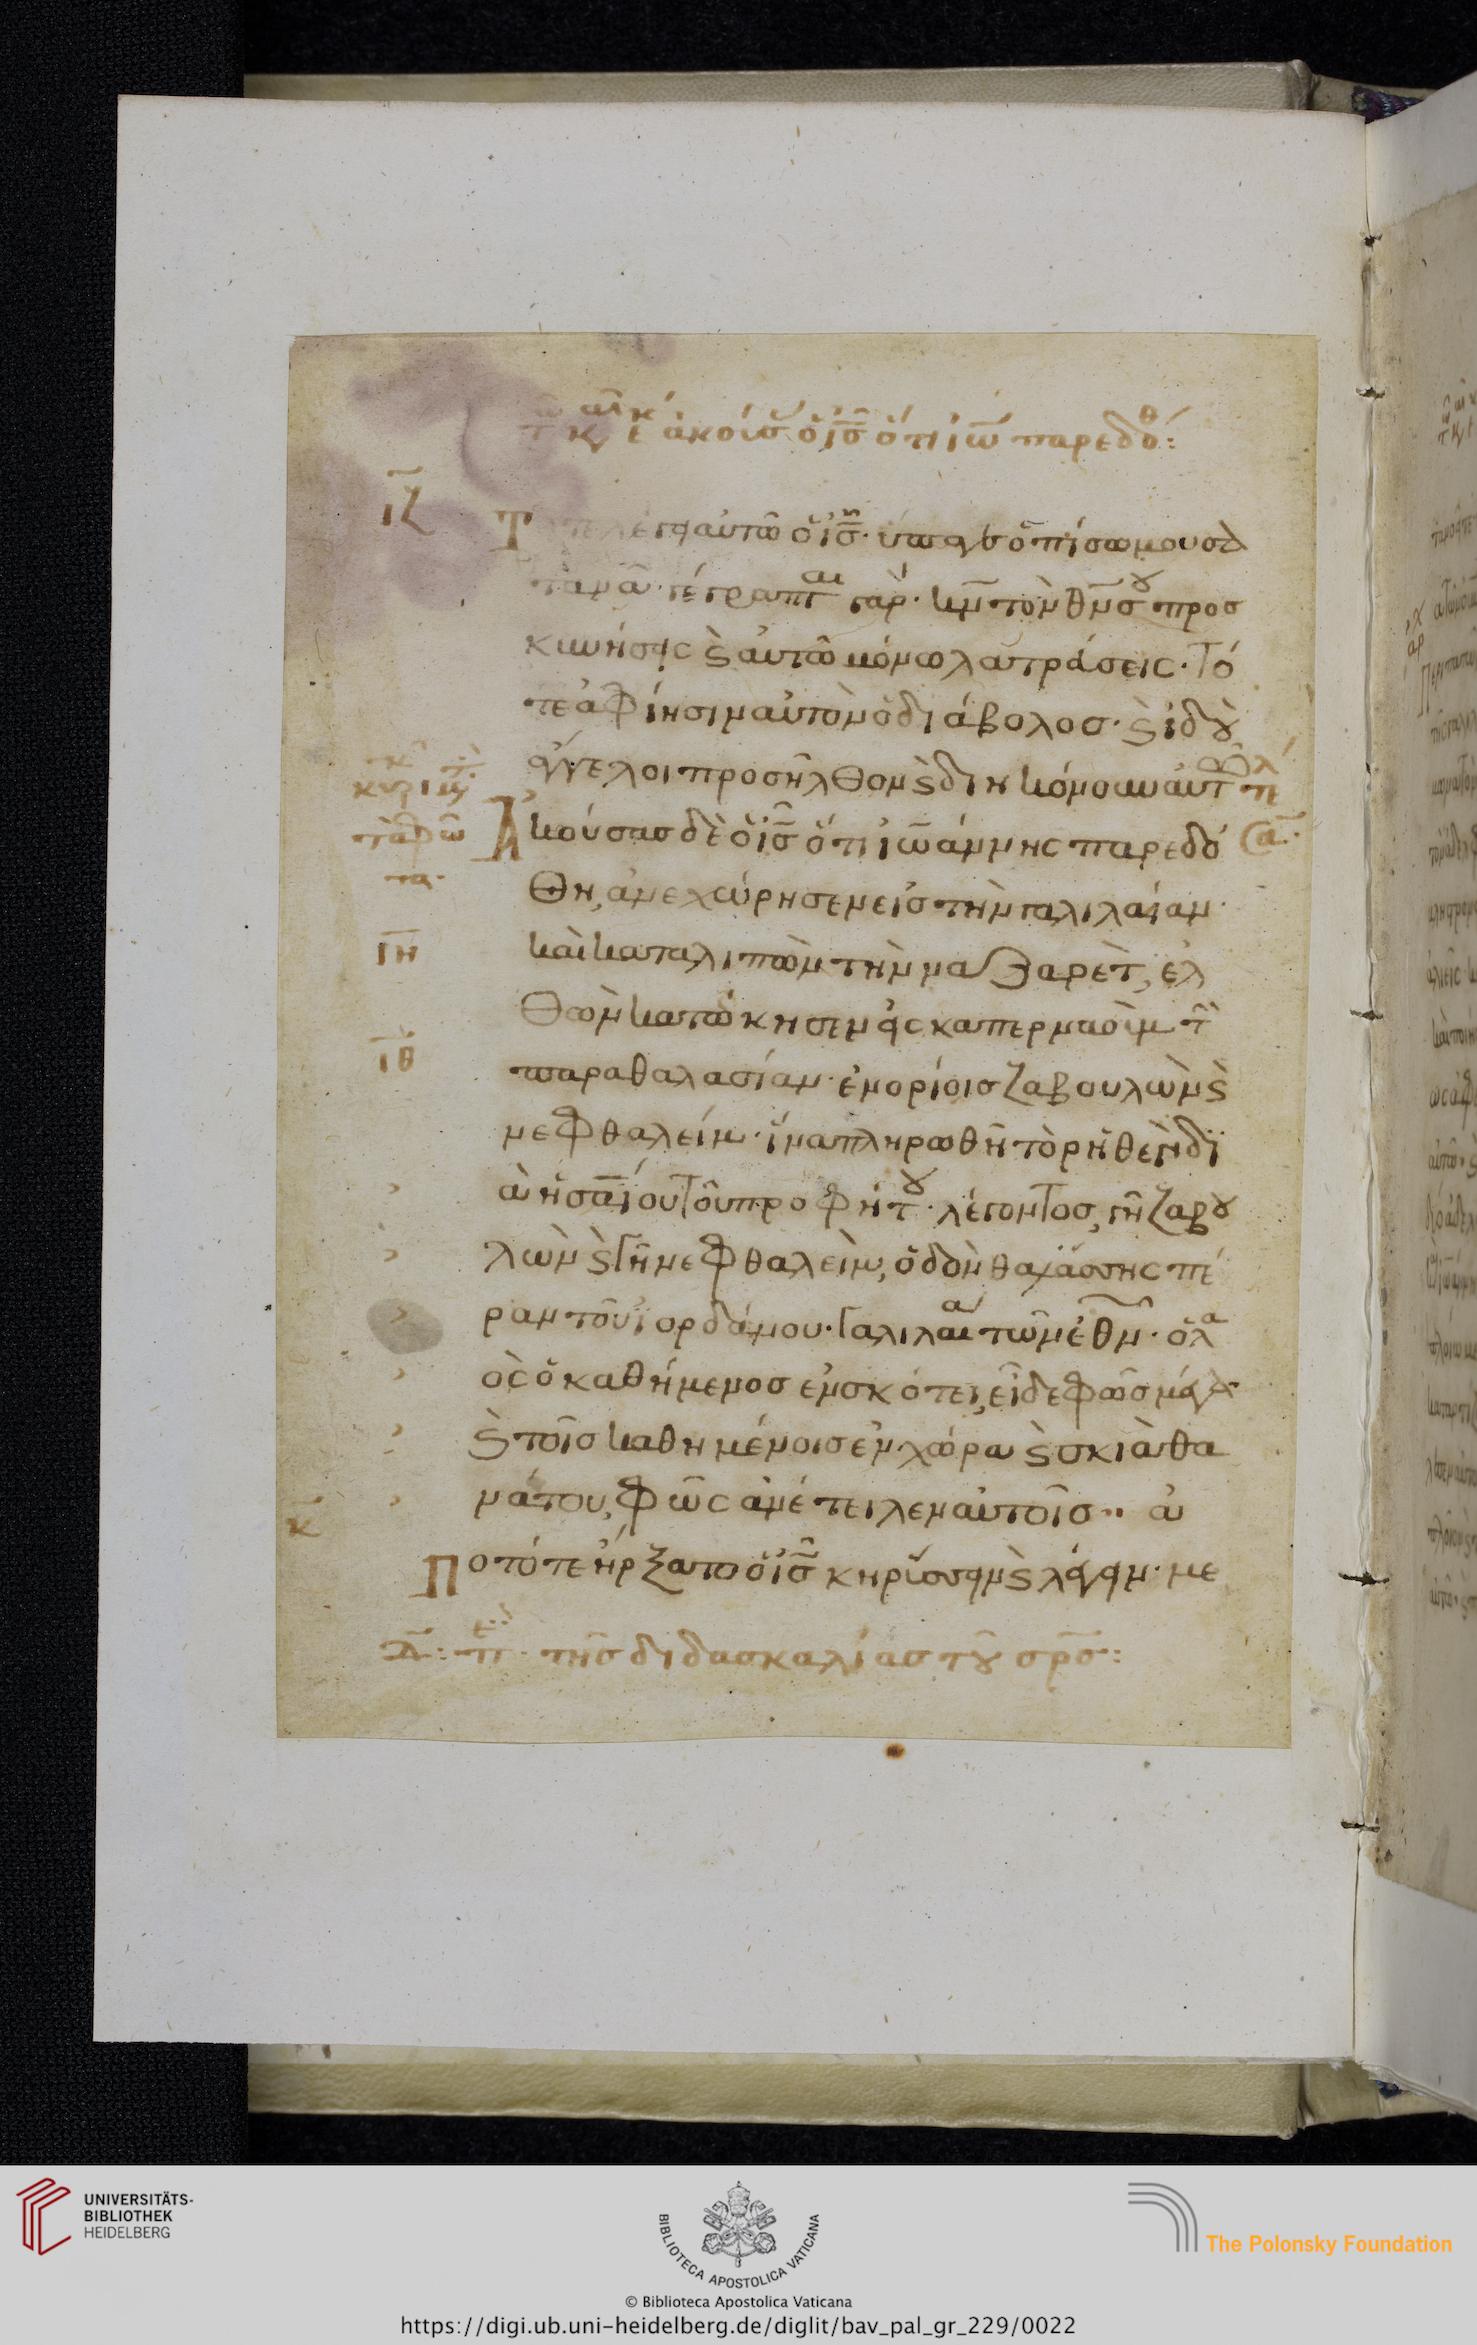 τ κ ε ἀκούσ ὁ ις ὅτι ιω παρεδοθ:
ιζ
Τ λέγει αὐτῶ ὁ ις· ὕπαγε ὀπίσω μου σα
τανᾶ· γέγραπται γάρ· κν τὸν θν σου προσ
κυνήσεις ϗ αὐτῶ μόνω λατρεύσεις· τό
τε ἀφίησιν αὐτὸν ὁ διάβολοσ· ϗ ἰδοὺ
ἄγγελοι προσῆλθον ϗ διηκόνουν αὐτ
Ἀκούσασ δὲ ὁ ις ὅτι ἰωάννης παρεδό
θη, ἀνεχώρησεν εἰσ τὴν γαλιλαίαν·
ιη
καὶ καταλιπὼν τὴν ναζαρὲτ, ἐλ
θὼν κατώκησεν εἰς καπερναοὺμ τὴν
ιθ
παραθαλασίαν· ἐν ορίοισ ζαβουλὼν ϗ
νεφθαλείμ· ἵνα πληρωθῆ τὸ ρηθὲν δι
ὰ ἡσαΐου τοῦ προφήτου· λέγοντοσ, γῆ ζαβου
λὼν ϗ γῆ νεφθαλεὶμ, ὁδὸν θαλάσσης πέ
ραν τοῦ ἰορδάνου· Γαλιλαία τῶν ἐθν· ὁ λα
ὸς ὁ καθήμενοσ ἐν σκότει, εἶδε φῶσ μέγα
ϗ τοῖσ καθημένοισ ἐν χώρα ϗ σκιὰ θα
νάτου, φῶς ἀνέτειλεν αὐτοῖσ·· ἀ
κ
πὸ τότε ἤρξατο ὁ ις κηρύσσειν ϗ λέγειν· με
τῆσ διδασκαλίασ τοῦ σρσ:
UNIVERSITÄTS-
BIBLIOTHEK
HEIDELBERG
BIBLIOTECA APOSTOLICA VATICANA
The Polonsky Foundation
© Biblioteca Apostolica Vaticana
https://digi.ub.uni-heidelberg.de/diglit/bav_pal_gr_229/0022